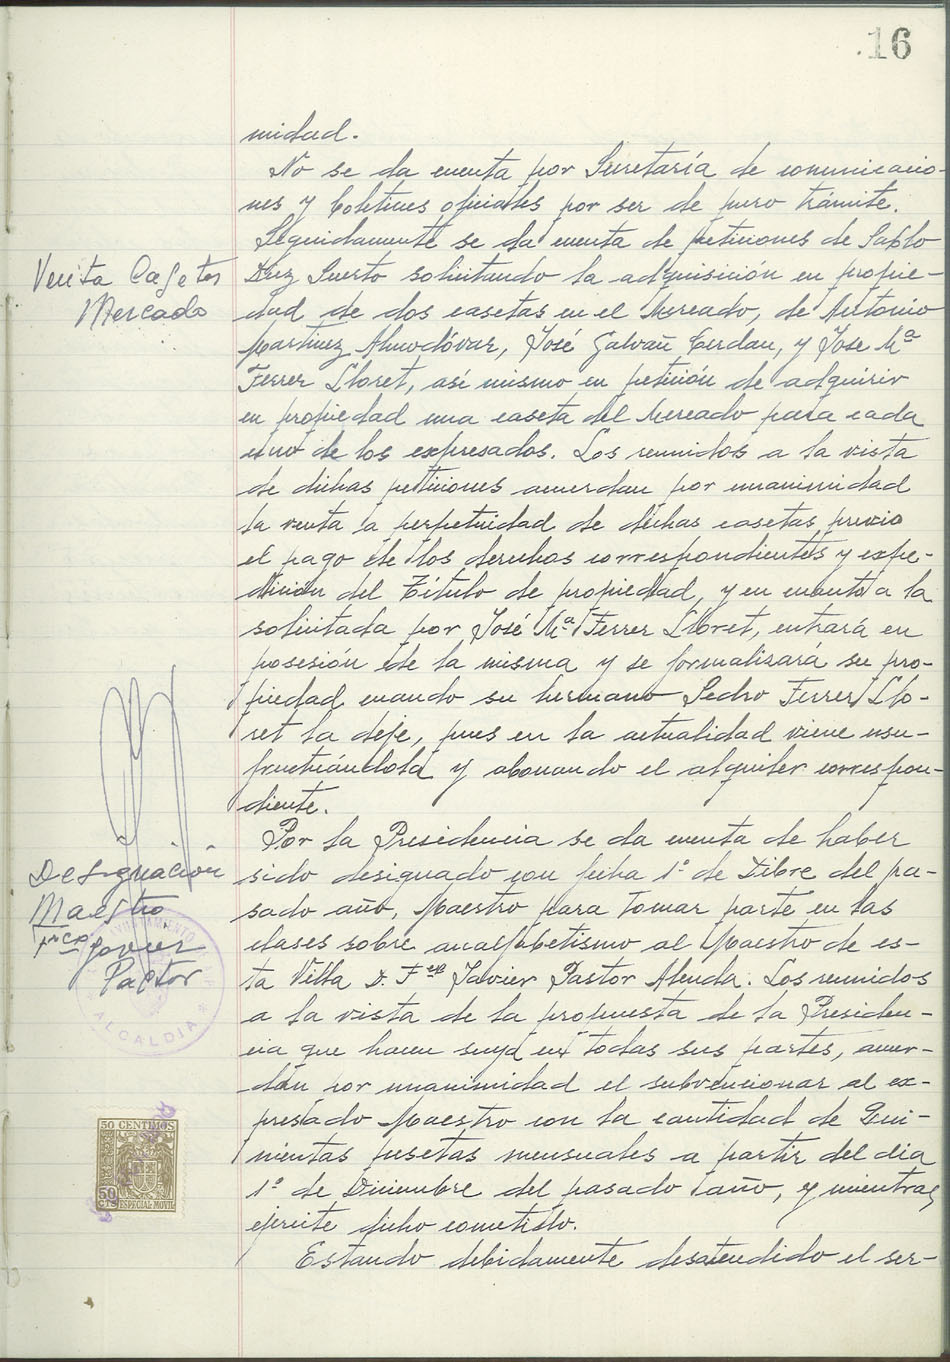 16
midad.
No se da cuenta por Secretaría de comunicacio-
nes y Boletines oficiales por ser de puro trámite.
Seguidamente se da cuenta de peticiones de Pablo
Venta Casetas
Mercado
Diez Puerto solicitando la adquisición en propie-
dad de dos casetas en el Mercado, de Antonio
Martinez Almodóvar, José Galvañ Cerdan, y Jose Mª
Ferrer Lloret, asi mismo en petición de adquirir
en propiedad una caseta del Mercado para cada
uno de los expresados. Los reunidos a la vista
de dichas peticiones acuerdan por unanimidad
la venta a perpetuidad de dichas casetas previo
el pago de los derechos correspondientes y expe-
dición del Título de propiedad, y en cuanto a la
solicitada por José Mª Ferrer Lloret, entrará en
posesión de la misma y se formalizará su pro-
piedad cuando su hermano Pedro Ferrer Llo-
ret la deje, pues en la actualidad viene usu-
fructuándola y abonando el alquiler correspon-
diente.
Por la Presidencia se da cuenta de haber
Designación
Maestro
Frco Javier
Pastor
sido designado con fecha 1º de Dibre del pa-
sado año, Maestro para tomar parte en las
clases sobre analfabetismo al Maestro de es-
ta Villa D. Fco Javier Pastor Alenda. Los reunidos
a la vista de la propuesta de la Presiden-
cia que hacen suya en todas sus partes, acuer-
dan por unanimidad el subvencionar al ex-
presado Maestro con la cantidad de Qui-
nientas pesetas mensuales a partir del dia
1º de Diciembre del pasado año, y mientras
ejercite dicho cometido.
Estando debidamente desatendido el ser-
AYUNTAMIENTO
ALCALDIA
50 CENTIMOS
50
CTS
ESPECIAL MOVIL